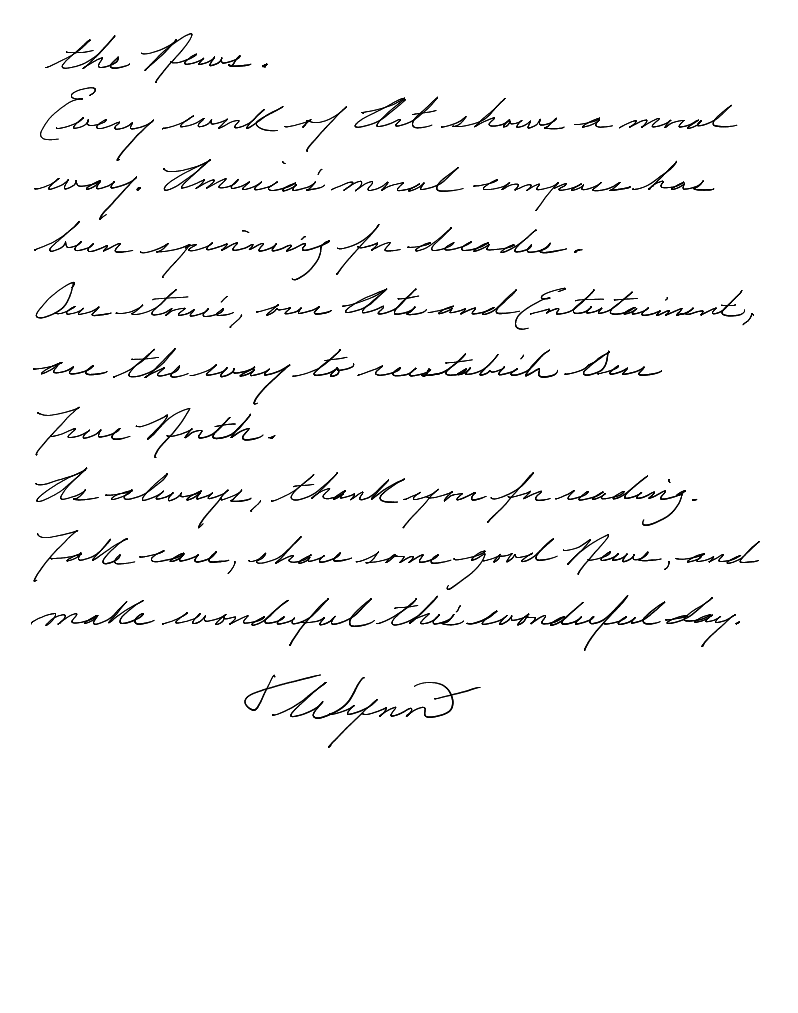 the News.
Every work of Art shows a moral
way. America's moral compass has
been spinning for decades.
Our stories, our Arts and Entertainment,
are the way to reestablish Our
True North.
As always, thank you for reading.
Take care, share some good News, and
make wonderful this wonderful day.
Wynn